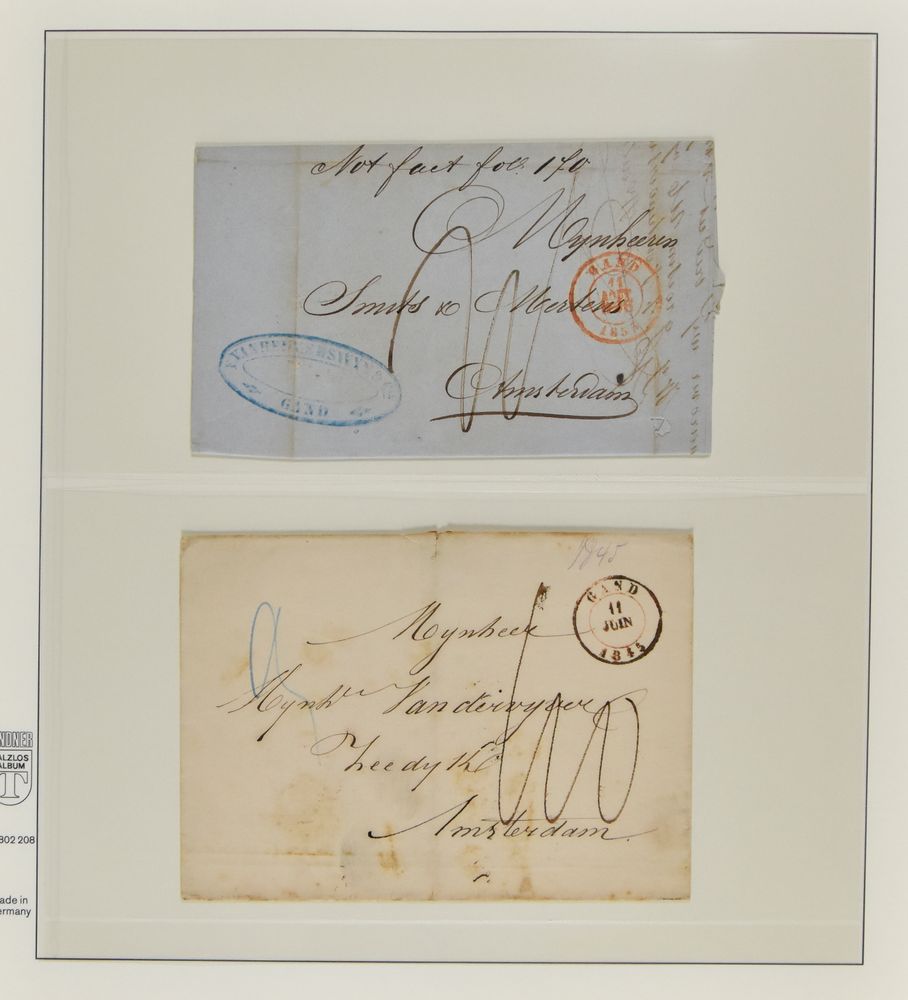 Not fact fol. 170
Mynheeren
Smits & Mertens
Amsterdam
GAND
11
1853
GAND
1845
GAND
11
JUIN
1845
Mynheer
Mynhr Vandervyver
Zeedyk
Amsterdam
NDNER
ALZLOS
ALBUM
T
802 208
ade in
ermany